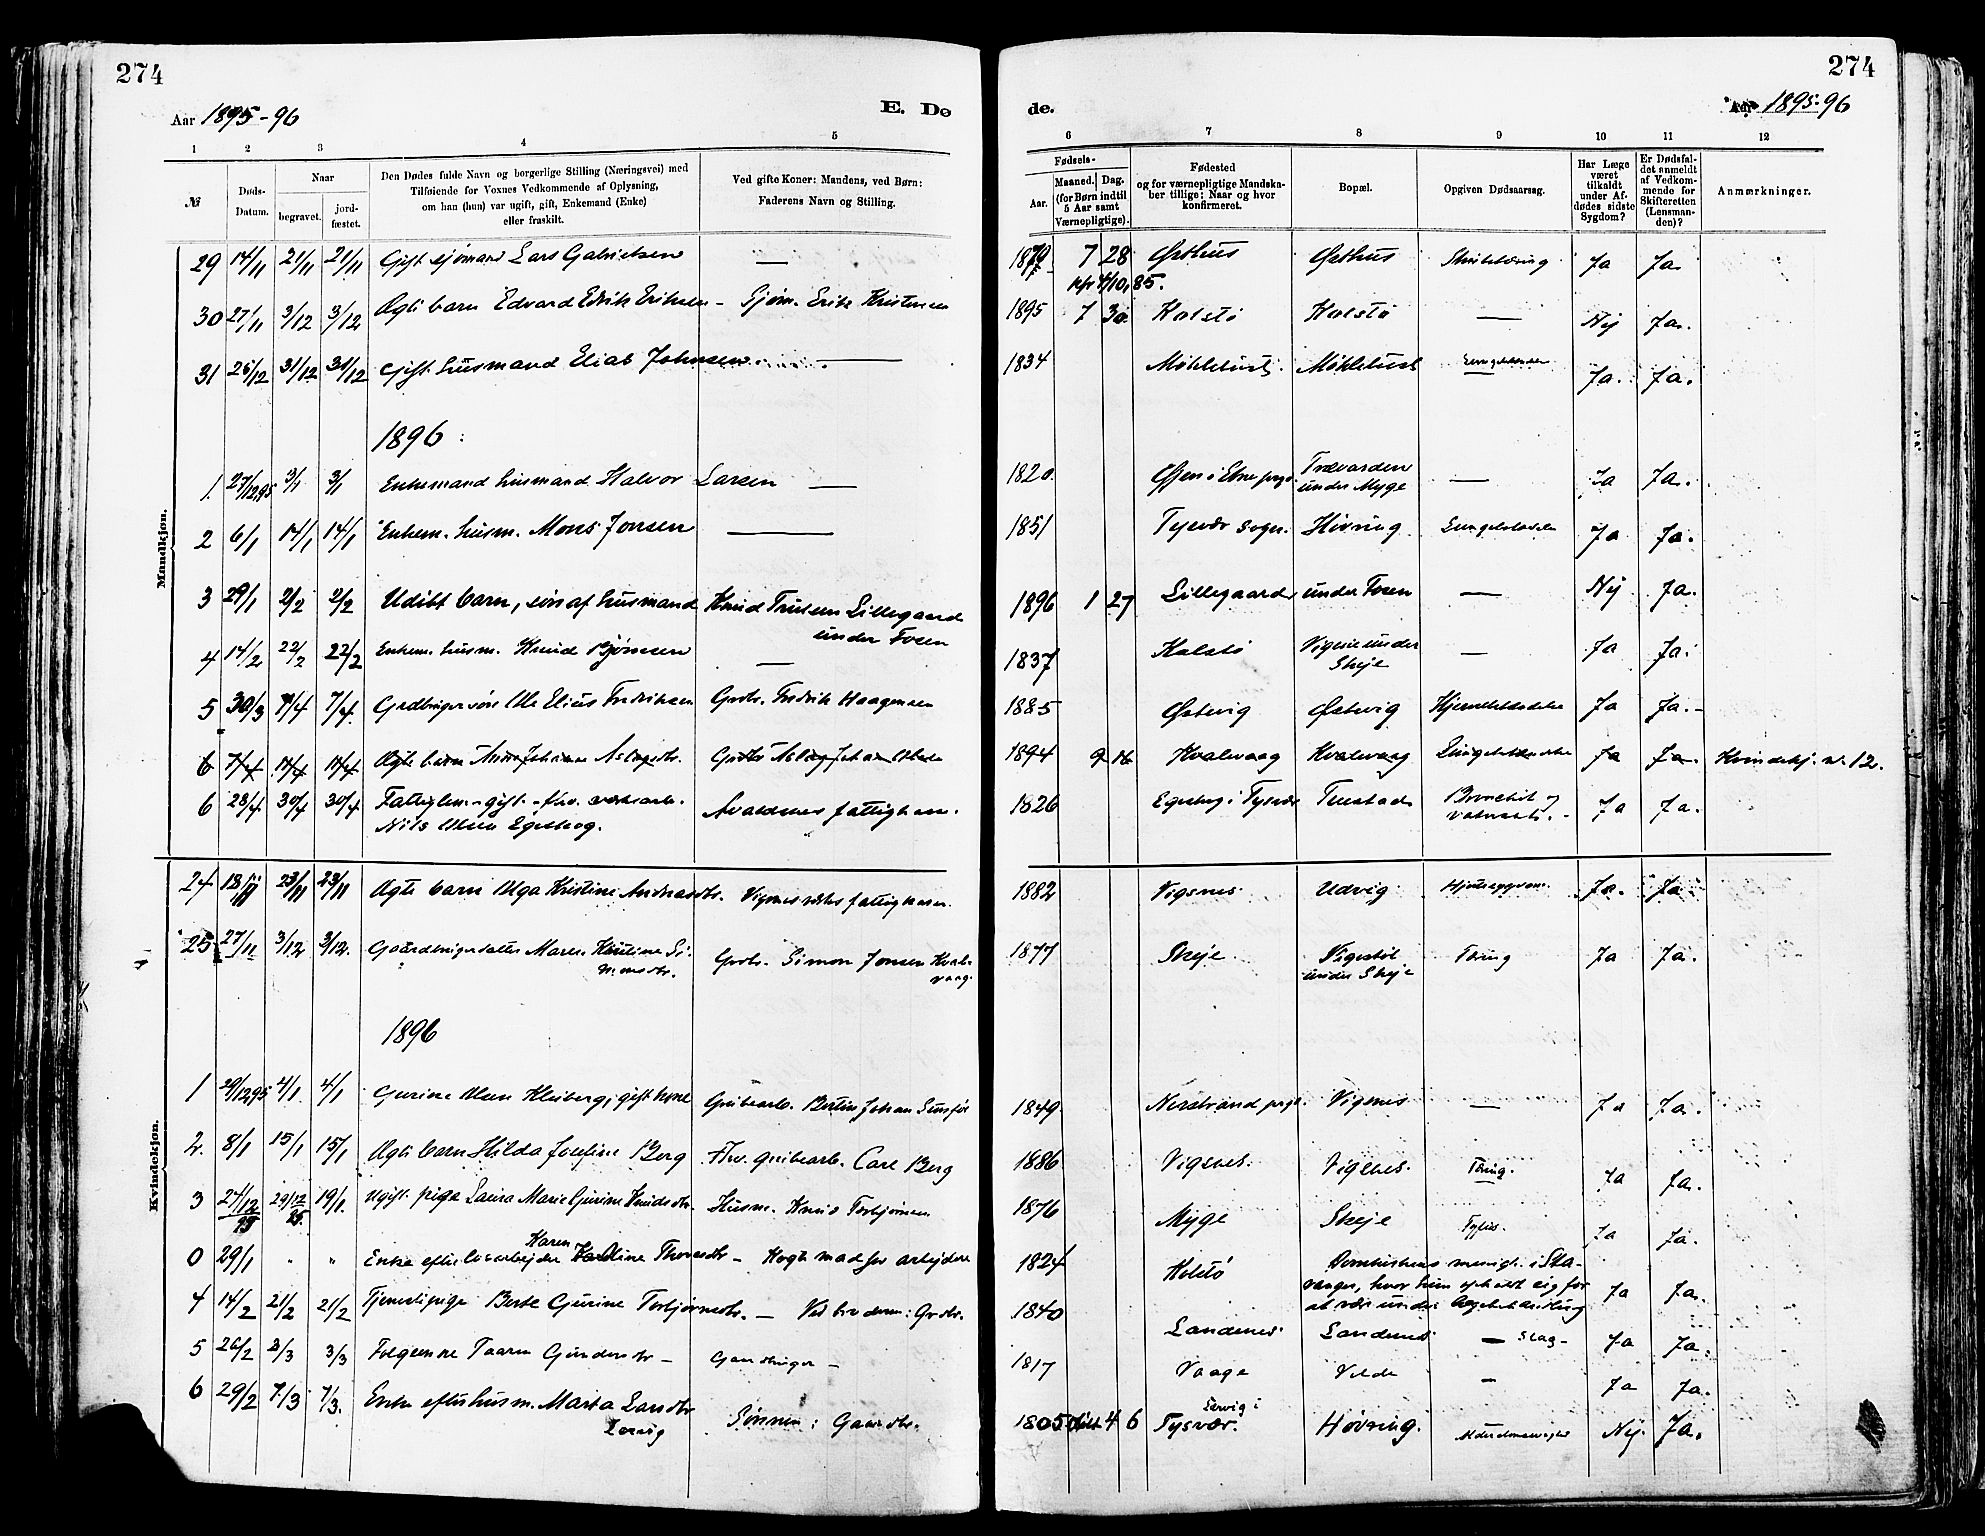 274
274
Aar 1895-96
E. Dø
de.
Aar 1895-96
1 2 3 4 5
6 7 8 9 10 11 12
№
Døds-Datum.
Naar
begravet.
jord-fæstet.
Den Dødes fulde Navn og borgerlige Stilling (Næringsvei) med
Tilføiende for Voxnes Vedkommende af Oplysning,
om han (hun) var ugift, gift, Enkemand (Enke)
eller fraskilt.
Ved gifte Koner: Mandens, ved Børn:
Faderens Navn og Stilling.
Fødsels-
Aar.
Maaned. Dag.
(for Børn indtil
5 Aar samt
Værnepligtige).
Fødested
og for værnepligtige Mandska-
ber tillige: Naar og hvor
konfirmeret.
Bopæl.
Opgiven Dødsaarsag.
Har Læge
været
tilkaldt
under Af-
dødes sidste
Sygdom?
Er Dødsfal-
det anmeldt
af Vedkom-
mende for
Skifteretten
(Lensman-
den)?
Anmærkninger.
Mandkjøn.
29 14/11 21/11 21/11 Gift sjømand Lars Gabrielsen — 7 28 Østhus Østhus Ja Ja.
30 27/11 3/12 3/12 Ægte barn Edvard Edrik Eriksen - Sjøm. Erik Kristensen 1895 7 30 Kalstø Kalstø — Nej Ja.
31 26/12 31/12 31/12 Gift husmand Elias Johnsen — 1834 Møhletust Møhletust Ja. Ja.
1896
1. 27/12 95 3/1 3/1 Enkemand husmand Halvor Larsen — 1820 Trævarden — Ja Ja.
under Myge
2 6/1 14/1 14/1 Enkem. husm. Mons Jonsen — 1851 Tysvær sogn. Høvring Lungebetændelse Ja Ja.
3 29/1 2/2 2/2 Udøbt barn, søn af husmand Knud Trulsen Lillegaard 1896 1 27 Lillegaard under Fosen — Nej Ja.
under Fosen
4 14/2 22/2 22/2 Enkem. husm. Knud Bjørnsen — 1837 Kalstø Vigene under — Ja Ja.
Skeje
5 30/3 7/4 7/4 Grdbruger søn Ole Elius Fredriksen Grdbr. Fredrik Haagensen 1885 Østevig Østevig Ja Ja.-
6 7/4 14/4 14/4 Ægte barn Anna Johanne Aslagsdtr. 1894 9 16 Kvalevaag Kvalevaag Lungebetændelse Ja Ja Kvindekj. nr. 12.
6 28/4 30/4 30/4 Fattiglem - gift - Avaldsnes fattigkasse. 1826 Egeberg i Tysvær Bronchit og Ja Ja.
Nils Olsen Egeberg.
24 18/11 23/11 23/11 Ægte barn Olga Kristine Andreasdtr. 1882 Vigsnes Udvig Ja. Ja.
25 27/11 3/12 3/12. Gaardbrugerdatter Maren Kristine Si- Grdbr. Simon Jonsen Kvale- 1877 Skeje Vigestøl Tæring Ja Ja.
monsdtr. vaag. under Skeje
1896
Kvindekjøn.
1 29/12 95 4/1 4/1 Gurine Olsen Kleiberg, gift kone Grubearb. Bertin Johan 1849 Nerstrand prgj. Vigsnes — Ja Ja.
2. 8/1 15/1 15/1 Ægte barn Hilda Josefine Berg Fhv. grubearb. Carl Berg 1886 Vigsnes. Vigsnes. Tæring. Ja Ja.
3 27/12 95 29/12 95. 19/1. Ugift pige Laura Marie Gurine Knudsdtr. Husm. Knud Torbjørnsen 1876 Myge Skeje Tyfus. Ja Ja.
Karen
0 29/1 " " Enke efter losarbejder Karoline Thorsdtr - Kogte mad for arbejdere 1824 Kolstø Domkirkens menigh. i Sta-
vanger, hvor hun opholdt sig for
at være under lægebehandling Ja Ja.
4 14/2 21/2 21/2 Tjenestepige Berte Gurine Torbjørnsdtr. — Ved broderen: Grdbr. 1840 Sandenes Sandenes — Slag- Ja Ja.
5 26/2 3/3 3/3 Taaren Gundersdtr - Gaardbruger - 1817 Vaage Velde — Ja Ja.
6 29/2 7/3 7/3. Enke efter husm. Marta Larsdtr Sønnen: Gaardbr. 1805 4 6 Tysvær. Høvring. Alderdomssvaghed Nej. Ja.